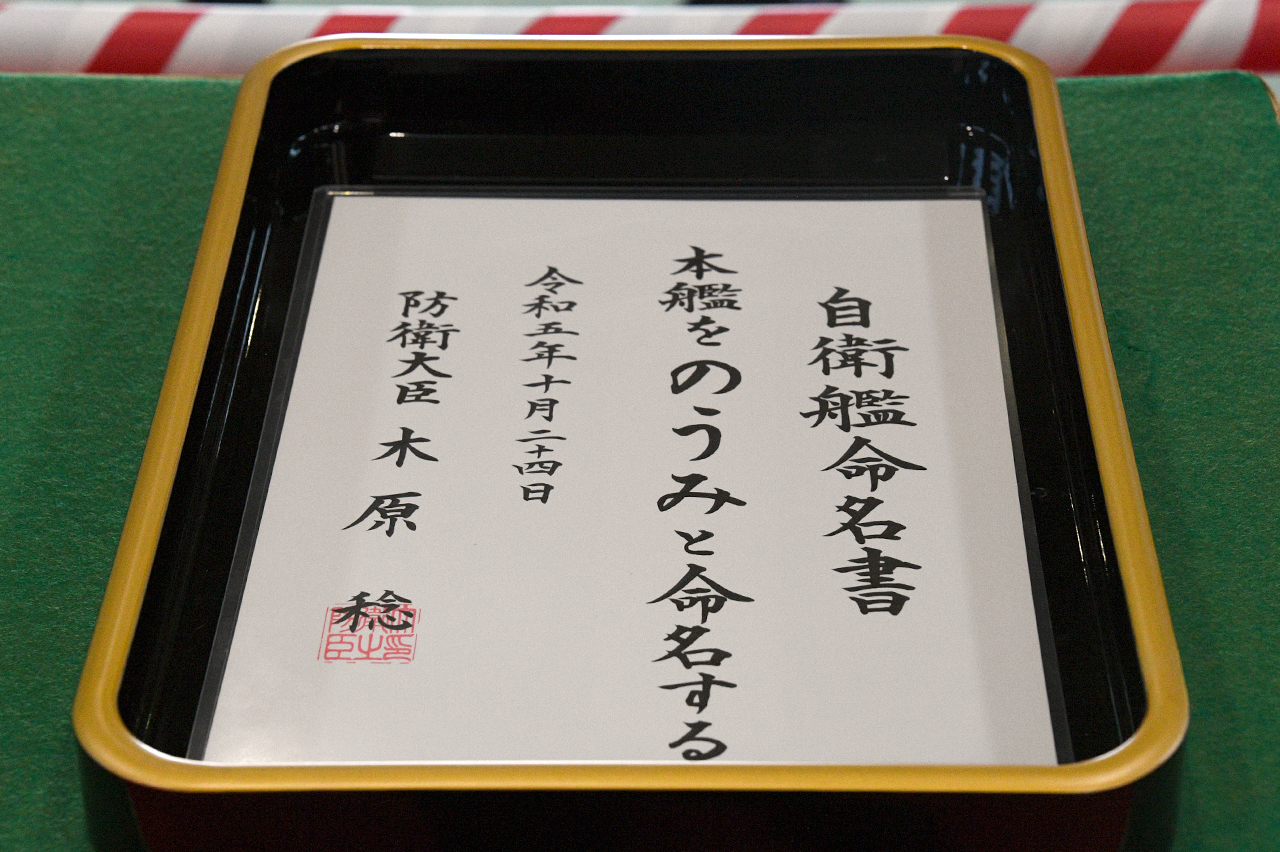 自衛艦命名書
本艦をのうみと命名する
令和五年十月二十四日
防衛大臣 木原 稔